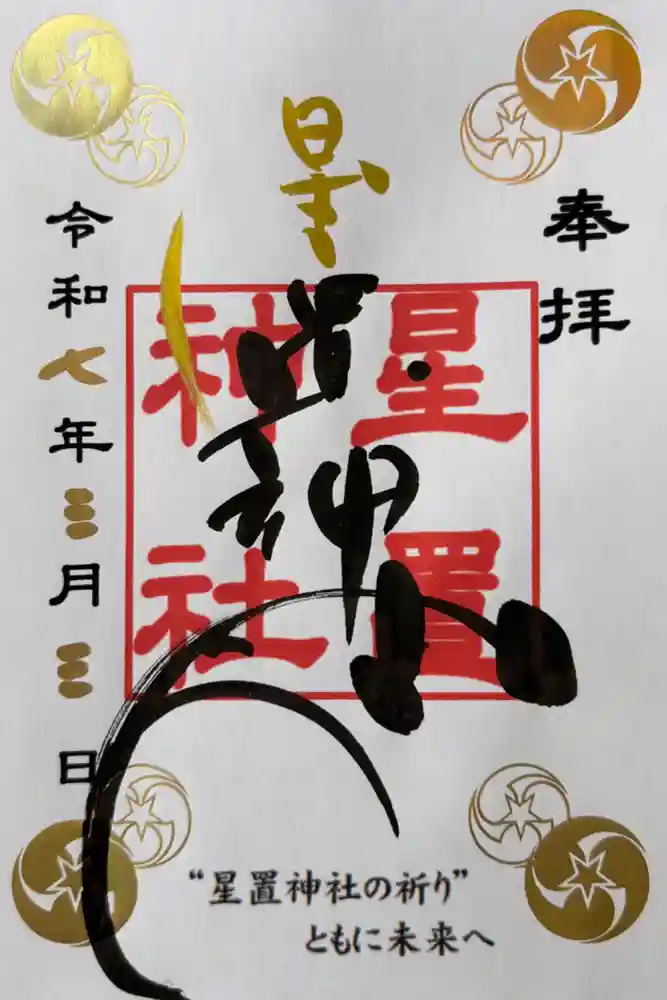 奉拝
星置神社
星置神社
令和七年三月三日
“星置神社の祈り”
ともに未来へ